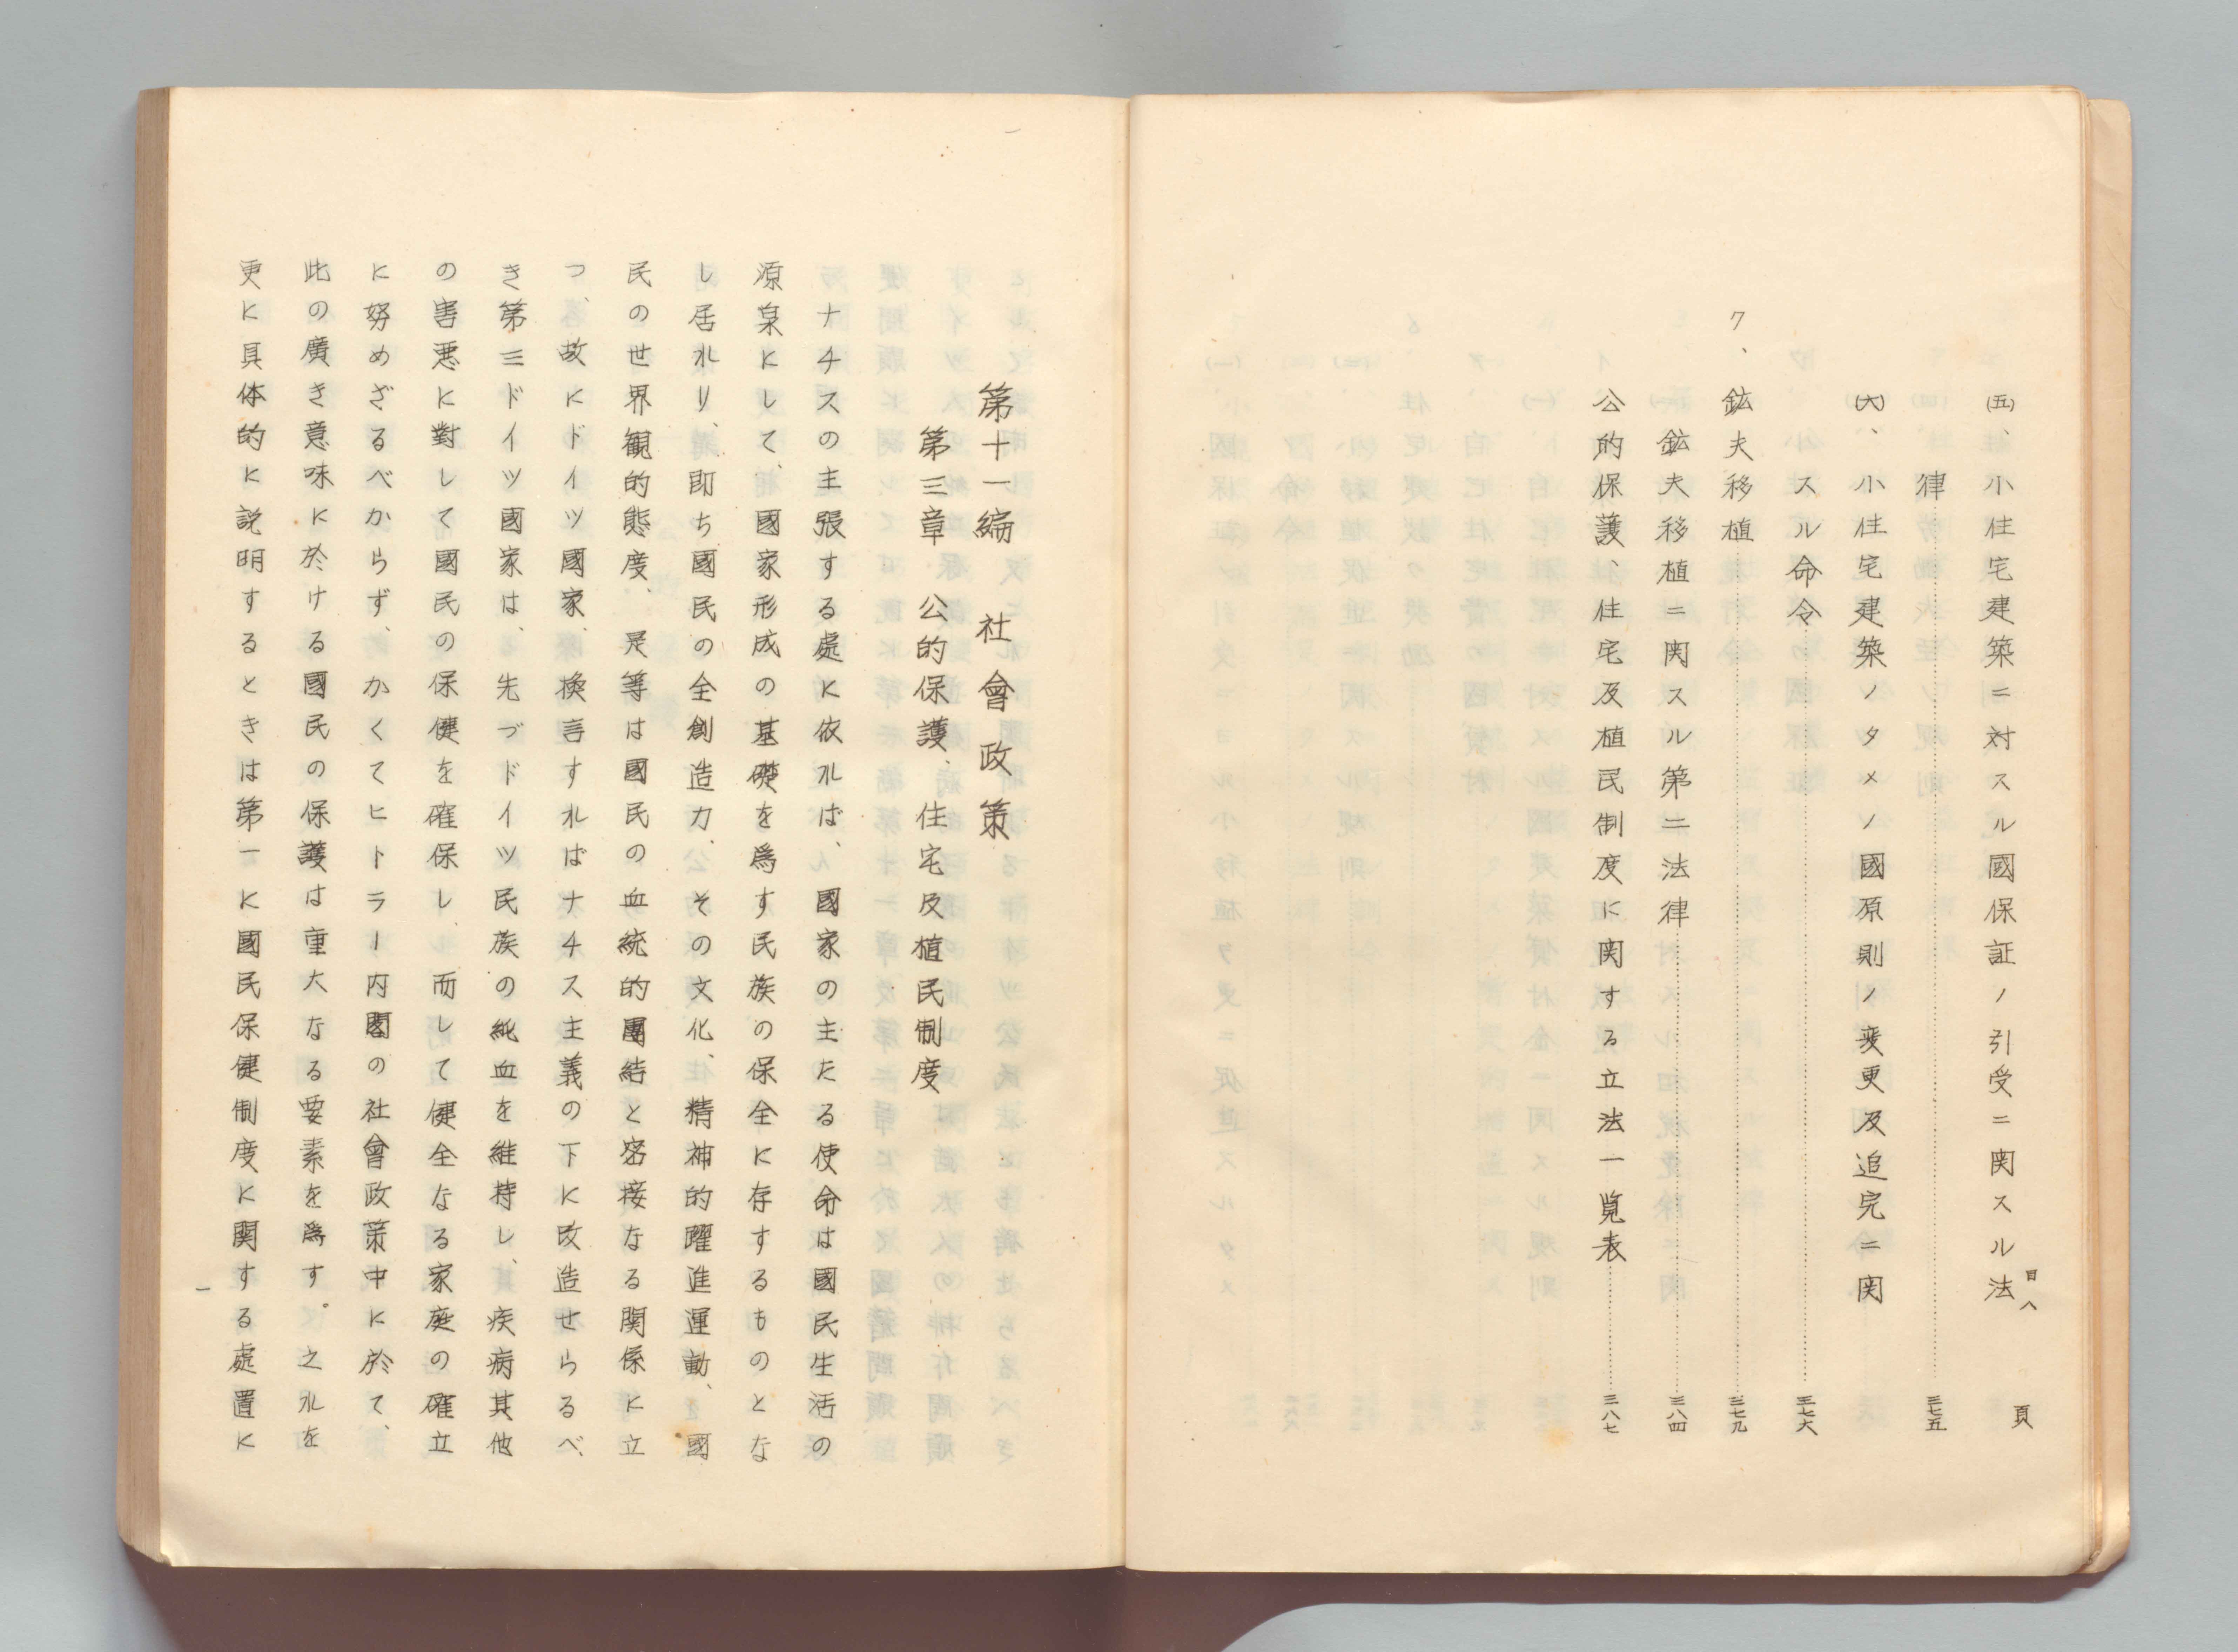 目八
頁
(五)、小住宅建築ニ対スル國保証ノ引受ニ関スル法
律……三七五
(六)、小住宅建築ノタメノ國原則ノ変更及追完ニ関
スル命令……三七六
7、鉱夫移植……三七九
鉱夫移植ニ関スル第二法律……三八四
公的保護、住宅及植民制度に関する立法一覧表……三八七
第十一編 社會政策
第三章 公的保護、住宅及植民制度
ナチスの主張する處に依れば、國家の主たる使命は國民生活の
源泉にして、國家形成の基礎を爲す民族の保全に存するものとな
し居れり、即ち國民の全創造力、その文化、精神的躍進運動、國
民の世界観的態度、是等は國民の血統的團結と密接なる関係に立
つ、故にドイツ國家、換言すればナチス主義の下に改造せらるべ
き第三ドイツ國家は、先づドイツ民族の純血を維持し、疾病其他
の害悪に對して國民の保健を確保し、而して健全なる家庭の確立
に努めざるべからず、かくてヒトラー内閣の社會政策中に於て、
此の廣き意味に於ける國民の保護は重大なる要素を爲す。之れを
更に具体的に説明するときは第一に國民保健制度に関する處置に
一